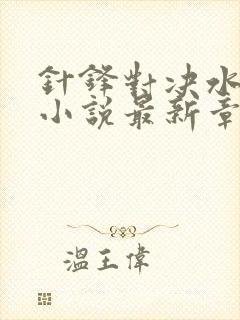 針鋒對決水
小說最新章
溫王偉